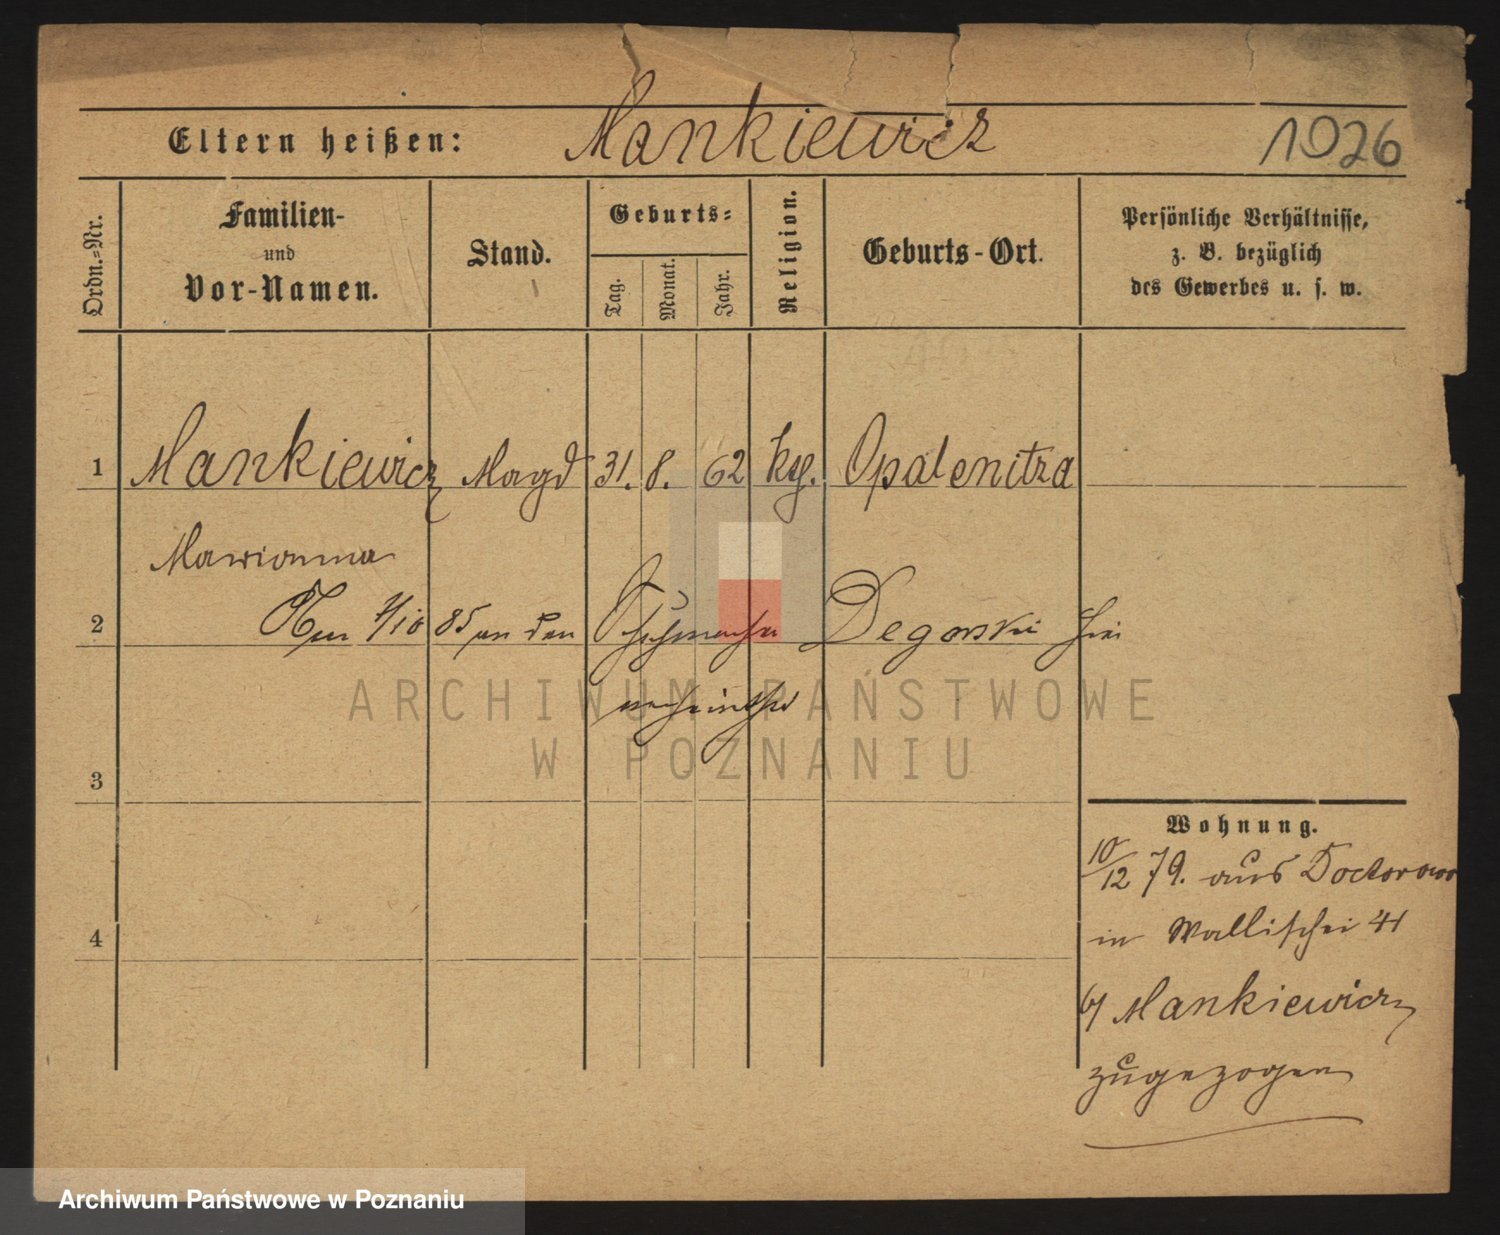 Eltern heißen: Mankiewicz 1026
Ordn.-Nr.
Familien-
und
Vor-Namen.
Stand.
Geburts-
Tag.
Monat.
Jahr.
Religion.
Geburts-Ort.
Persönliche Verhältnisse,
z. B. bezüglich
des Gewerbes u. s. w.
1 Mankiewicz Magd 31. 8. 62 kth. Opalenitza
Marianna
2 Am 4/10 85 an den Schuhmacher Degorski hier
verheirathet
ARCHIWUM PAŃSTWOWE
W POZNANIU
3
Wohnung.
10/12 79. aus Doctorowo
4
in Wallischei 41
b/ Mankiewicz
zugezogen
Archiwum Państwowe w Poznaniu